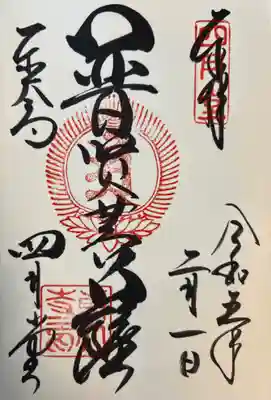 奉拝
令和五年
二月一日
普賢菩薩
東大寺
四月堂